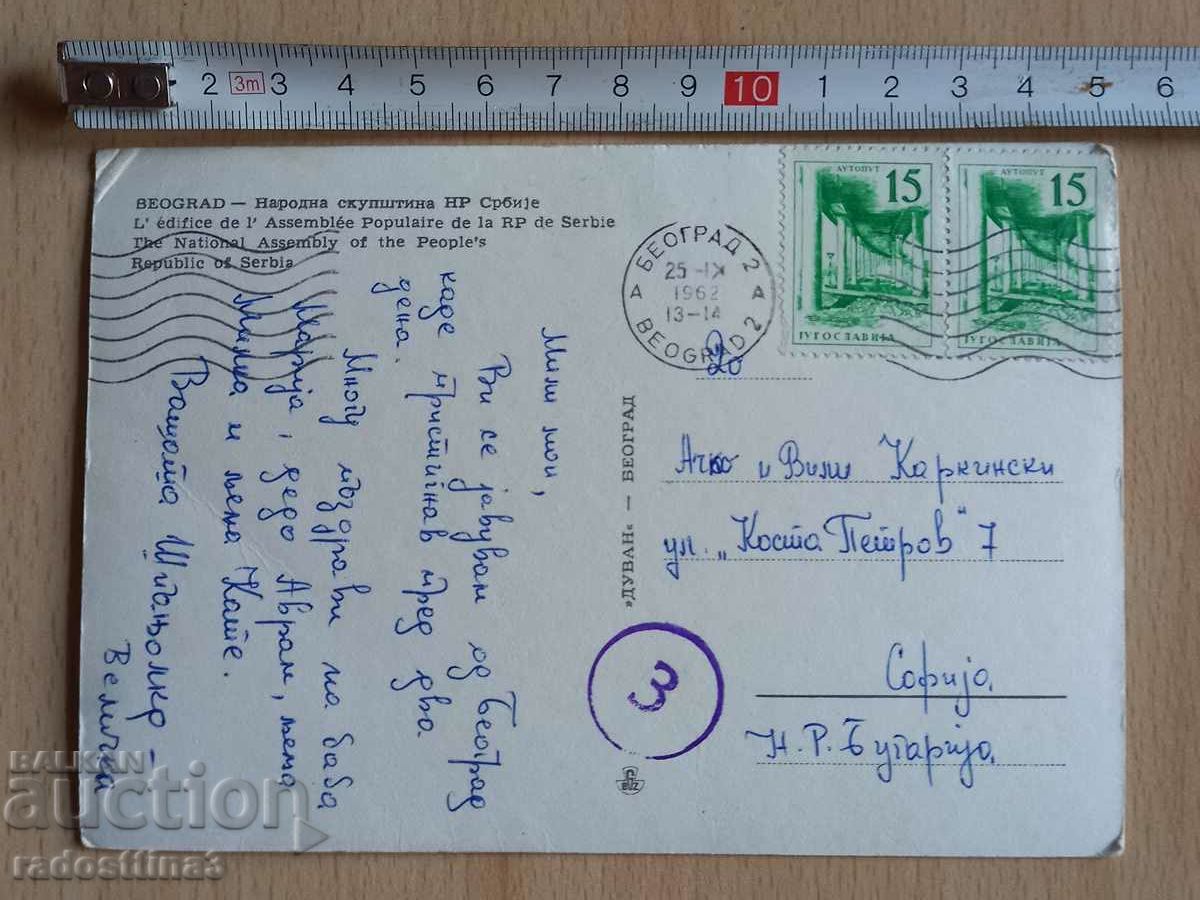 2 3m 3 4 5 6 7 8 9 10 1 2 3 4 5 6
BEOGRAD — Народна скупштина НР Србије
L' édifice de l' Assemblée Populaire de la RP de Serbie
The National Assembly of the People's
Republic of Serbia
Мили мои,
Ви се јавувам од Београд
каде пристигнав пред два
дена.
Многу поздрави на баба
Марија, дедо Аврам,
Милка и Кате.
Вашата
Величка
»ДУВАН« — БЕОГРАД
БЕОГРАД 2
25 -IX
1962
13-14
A A
BEOGRAD 2
АУТОПУТ
15
ЈУГОСЛАВИЈА
АУТОПУТ
15
ЈУГОСЛАВИЈА
До
Ачко и Вили Каркински
ул. „Коста Петров" 7
Софија
Н.Р. Бугарија
3
BUZ
BALKAN
auction
radosttina3